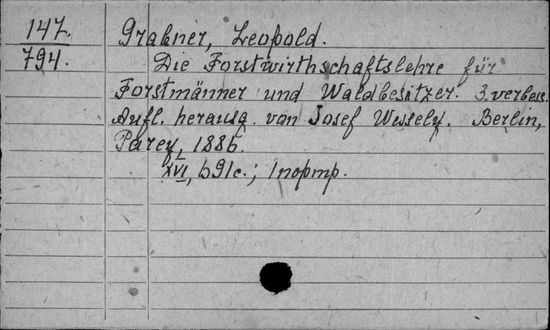 147. Grabner, Leopold.
794. Die Forstwirthschaftslehre für
Forstmänner und Waldbesitzer. 3. verbess.
Aufl. herausg. von Josef Wessely. Berlin,
Parey, 1886.
XVI, 691 с.; 1 портр.